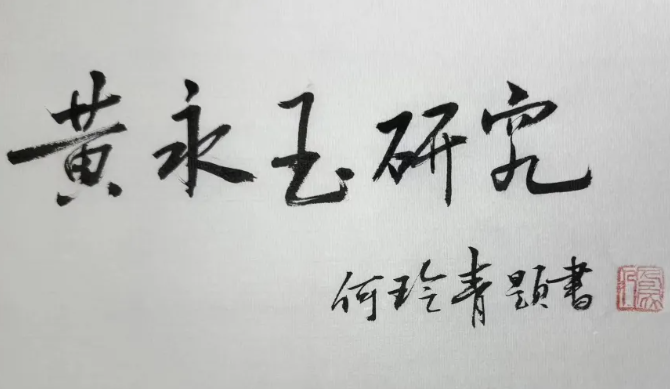 黄永玉研究
何玲青题書